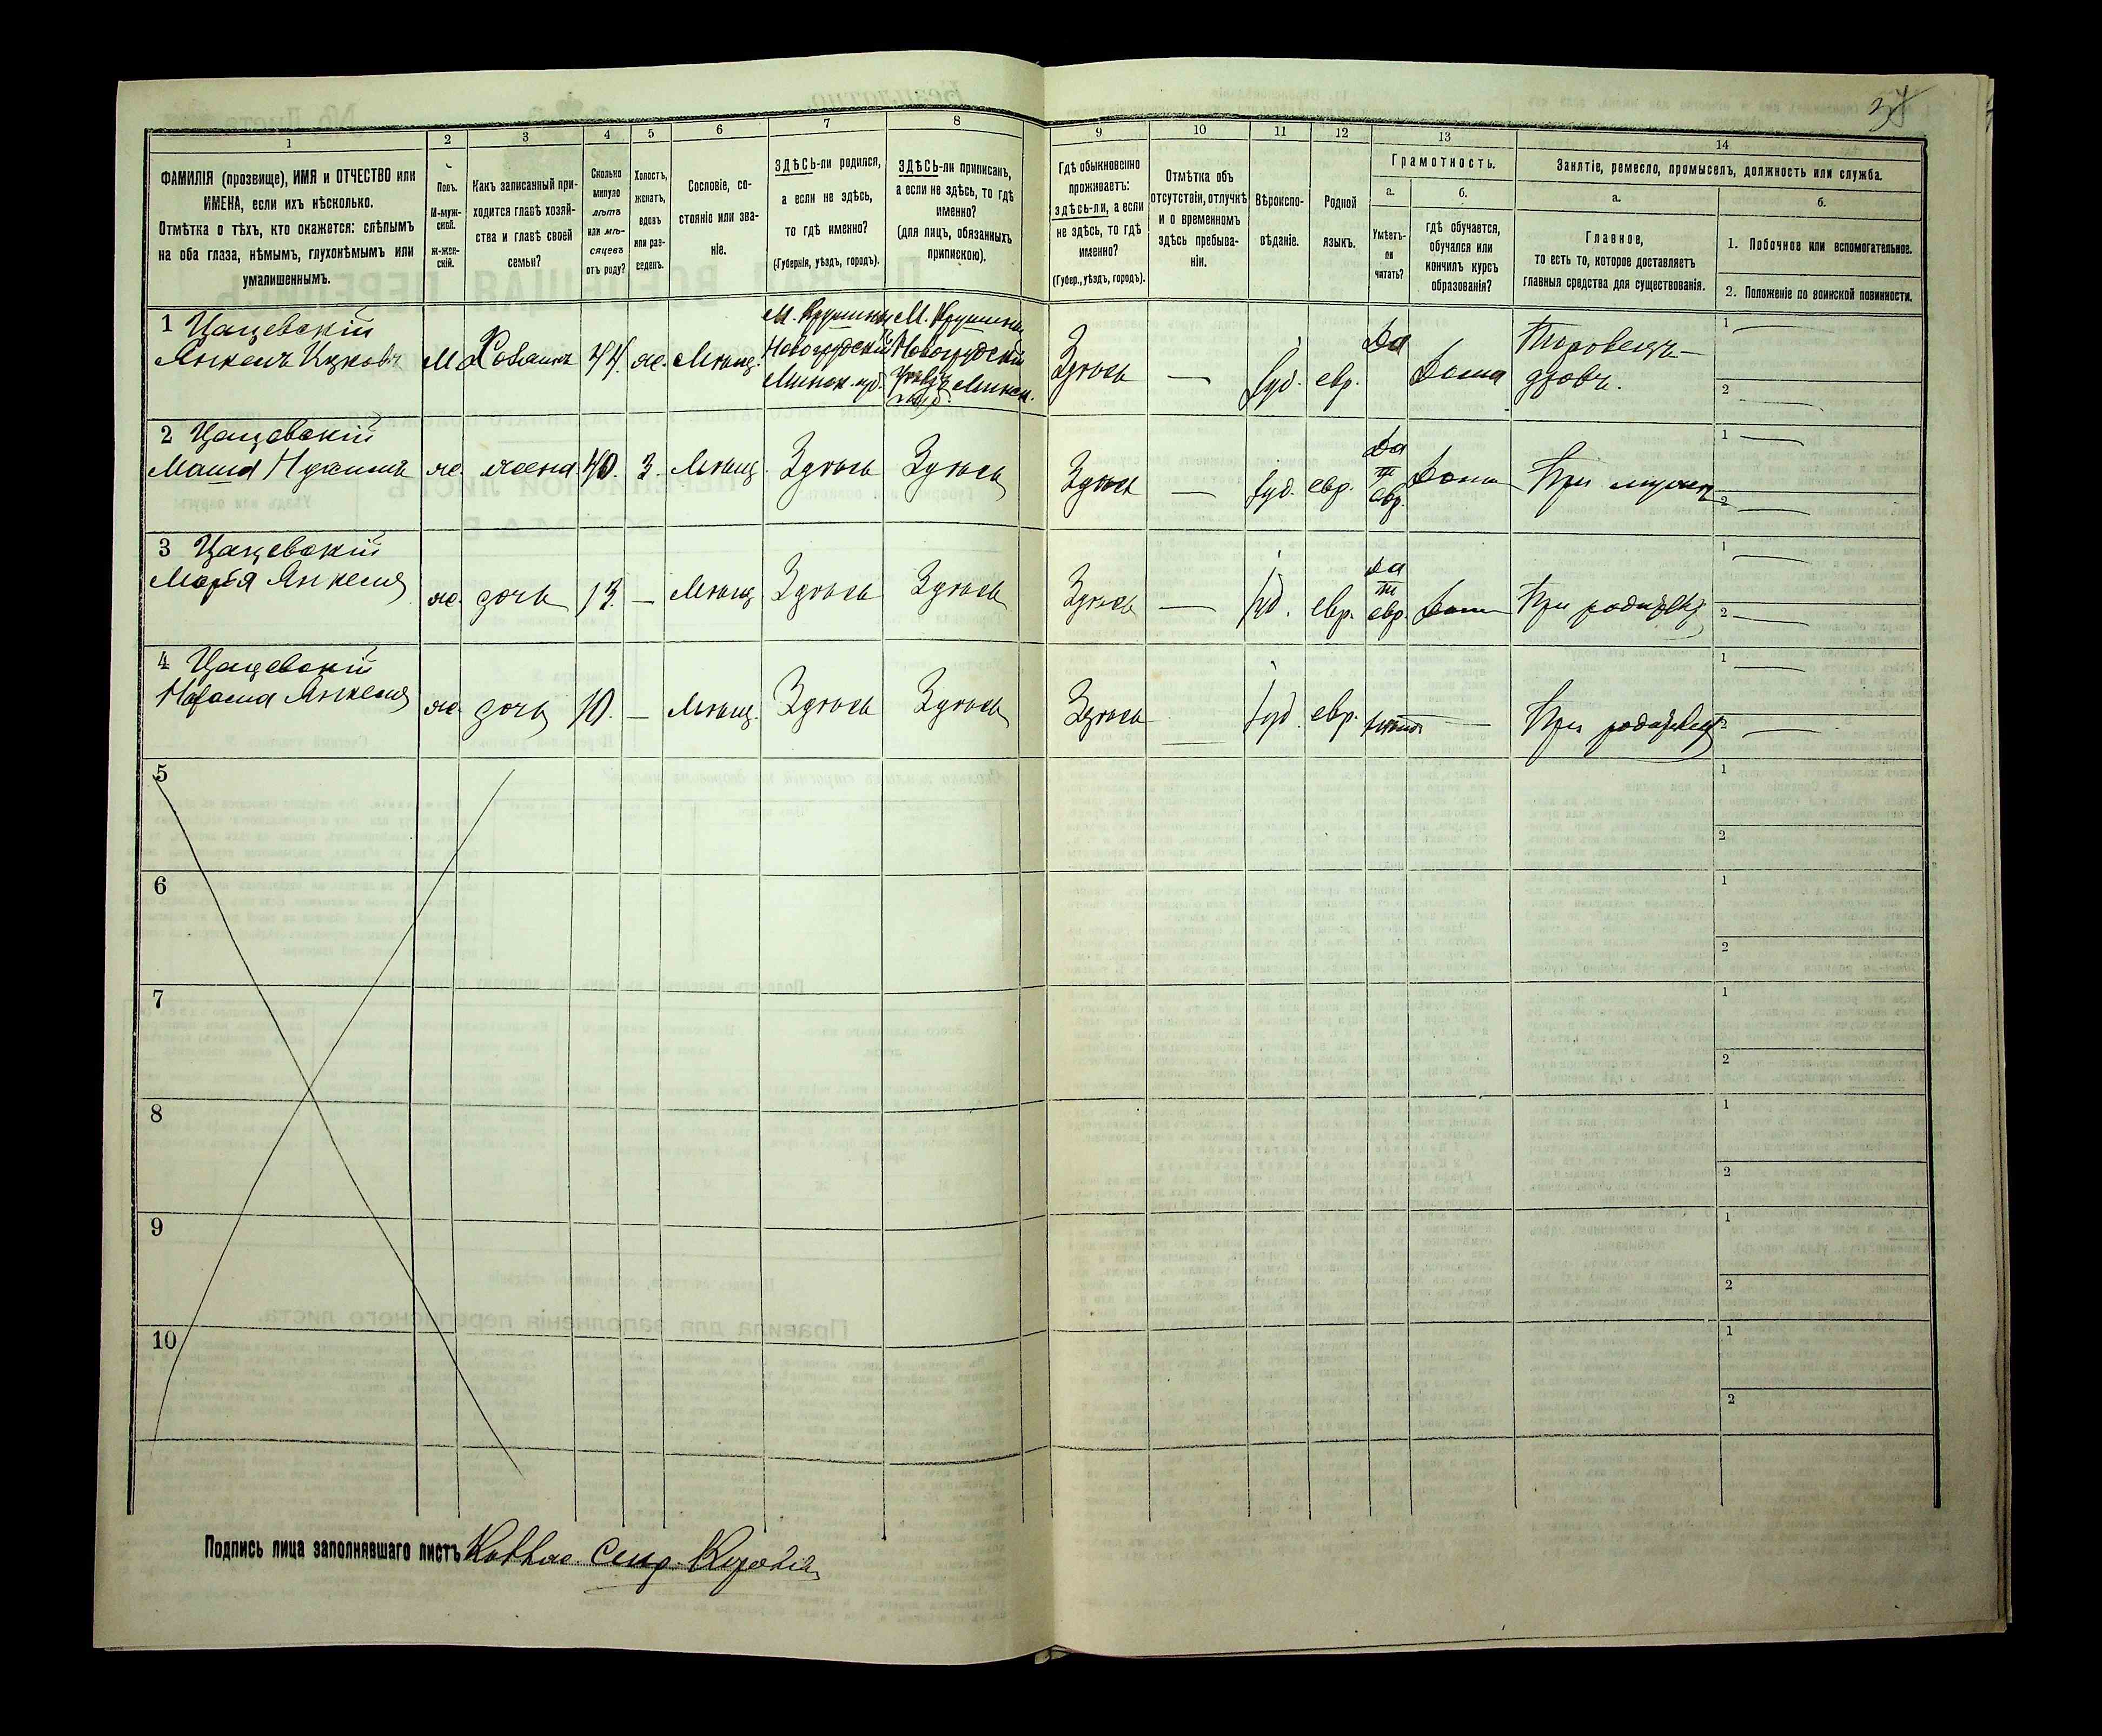 1
2
3
4
5
6
7
8
9
10
11
12
13
14
ФАМИЛІЯ (прозвище), ИМЯ и ОТЧЕСТВО или
ИМЕНА, если ихъ нѣсколько.
Отмѣтка о тѣхъ, кто окажется: слѣпымъ
на оба глаза, нѣмымъ, глухонѣмымъ или
умалишеннымъ.
Полъ.
М-муж-
ской.
Ж-жен-
скій.
Какъ записанный при-
ходится главѣ хозяй-
ства и главѣ своей
семьи?
Сколько
минуло
лѣтъ
или мѣ-
сяцевъ
отъ роду?
Холостъ,
женатъ,
вдовъ
или раз-
веденъ.
Сословіе, со-
стояніе или зва-
ніе.
ЗДѢСЬ-ли родился,
а если не здѣсь,
то гдѣ именно?
(Губернія, уѣздъ, городъ).
ЗДѢСЬ-ли приписанъ,
а если не здѣсь, то гдѣ
именно?
(для лицъ, обязанныхъ
припискою).
Гдѣ обыкновенно
проживаетъ:
здѣсь-ли, а если
не здѣсь, то гдѣ
именно?
(Губер., уѣздъ, городъ).
Отмѣтка объ
отсутствіи, отлучкѣ
и о временномъ
здѣсь пребыва-
ніи.
Вѣроиспо-
вѣданіе.
Родной
языкъ.
Грамотность.
а.
Умѣетъ-
ли
читать?
б.
гдѣ обучается,
обучался или
кончилъ курсъ
образованія?
Занятіе, ремесло, промыселъ, должность или служба.
а.
Главное,
то есть то, которое доставляетъ
главныя средства для существованія.
б.
1. Побочное или вспомогательное.
2. Положеніе по воинской повинности.
1 Цацевскій
Янкель Ицковъ
М Хозяинъ 44. ж. Мѣщ.
Новогрудскій
Минск. губ.
Новогрудскій
Уѣздъ Минск.
губ.
Здѣсь — Іуд. евр. Да Дома
Торговецъ
дровъ.
1
2
2 Цацевскій
Маша
ж. жена 40. З. Мѣщ. Здѣсь Здѣсь
Здѣсь — Іуд. евр. Да
евр. Дома При мужѣ
1
2
3 Цацевскій
Марія Янкелев
ж. дочь 13. — Мѣщ Здѣсь Здѣсь
Здѣсь — Іуд. евр. Да
евр. Дома При родителях
1
2
4 Цацевскій
ж. дочь 10. — Мѣщ. Здѣсь Здѣсь
Здѣсь — Іуд. евр. — При родителях
1
2
5
1
2
6
1
2
7
1
2
8
1
2
9
1
2
10
1
2
Подпись лица заполнявшаго листъ